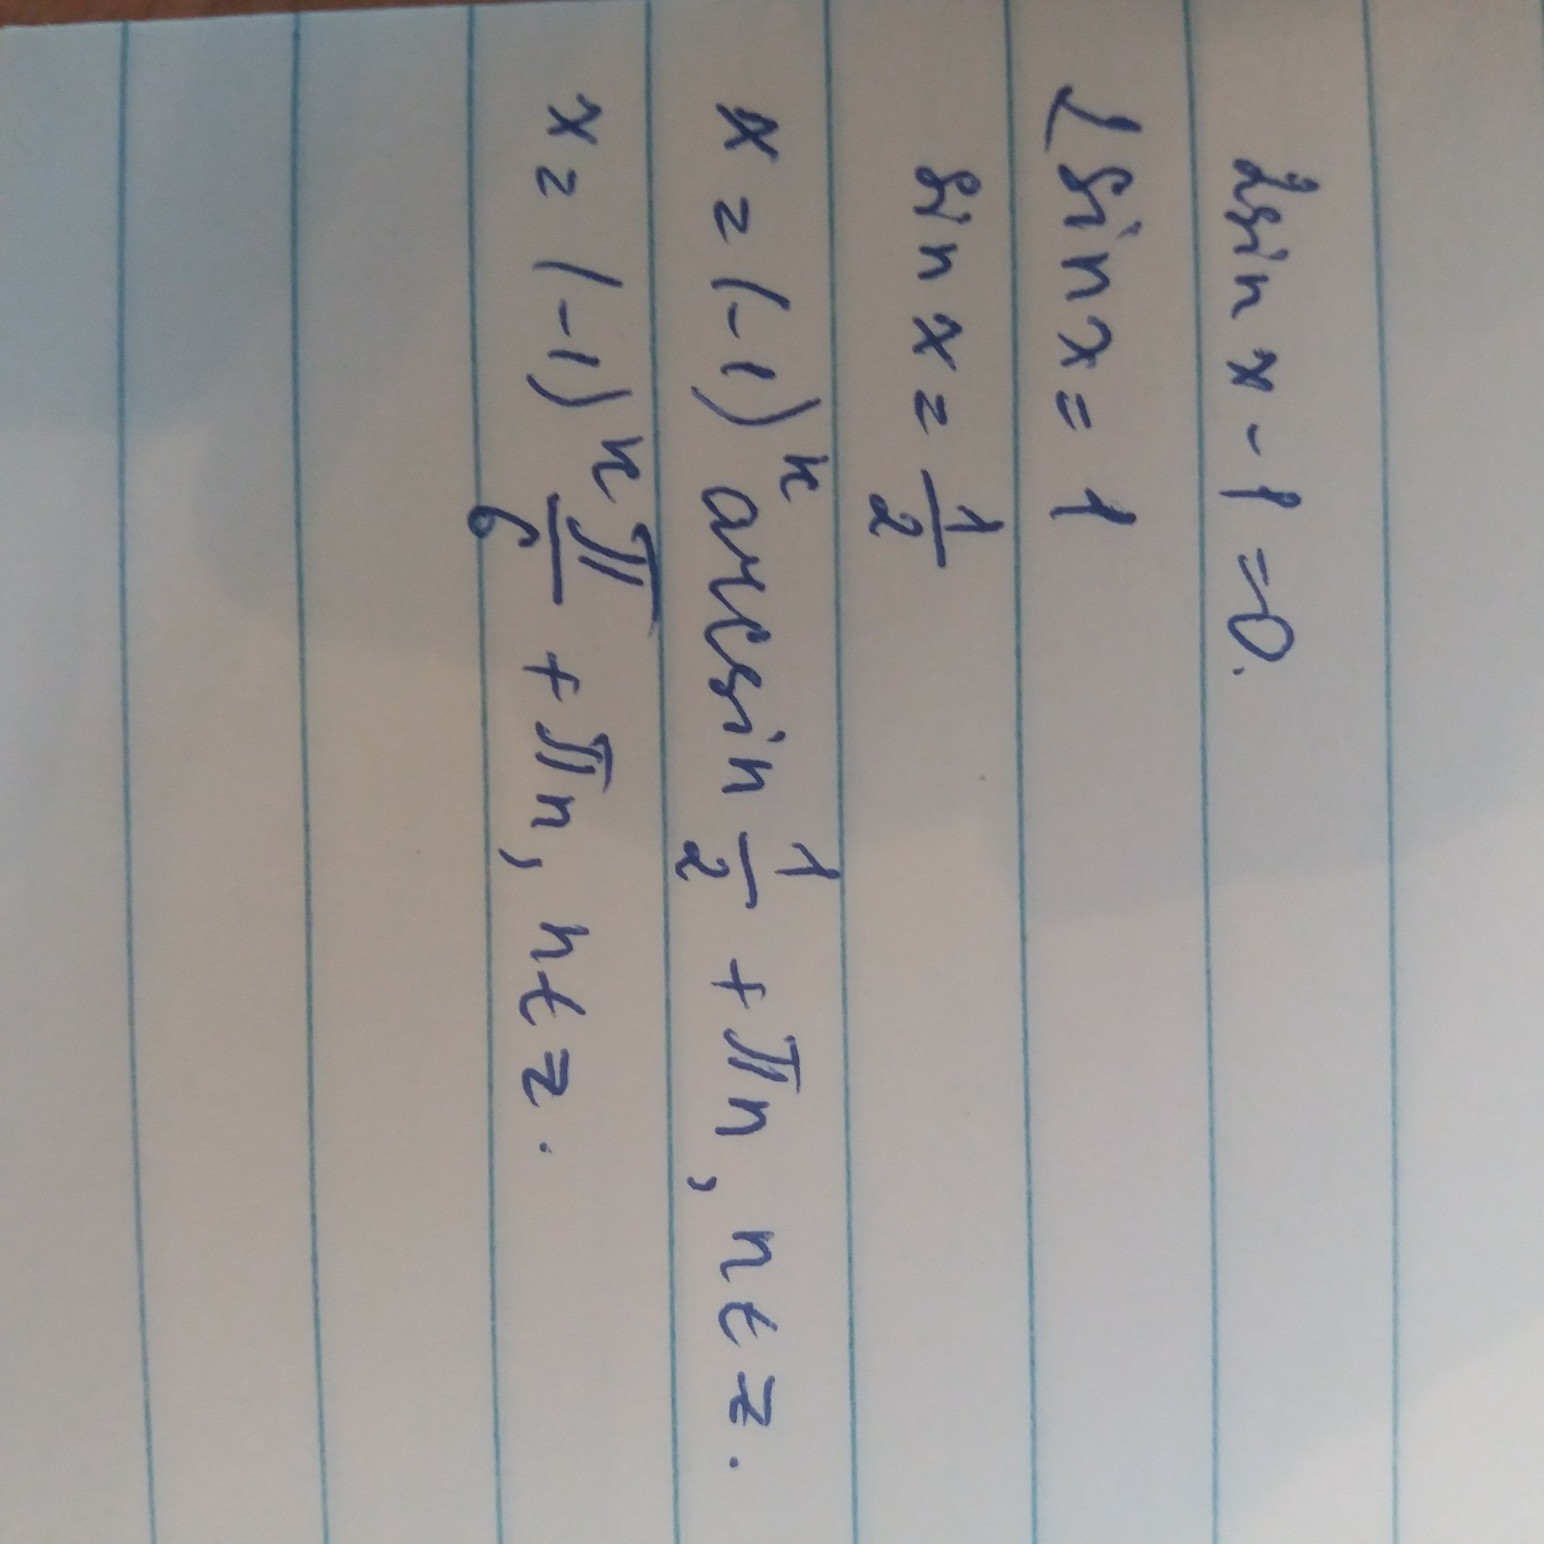 2sin x - 1 = 0.
2 sin x = 1
sin x = 1/2
x = (-1)^n arcsin 1/2 + πn, n ∈ z.
x = (-1)^n π/6 + πn, n ∈ z.